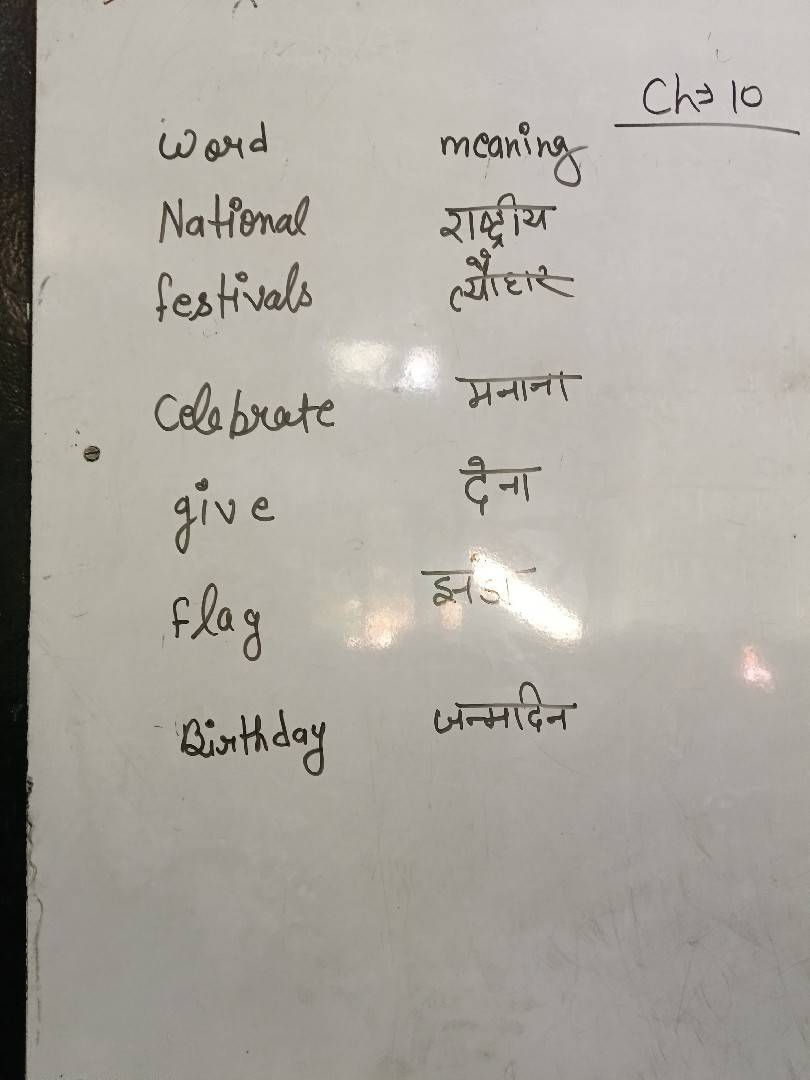 Ch⇒ 10
Word meaning
National राष्ट्रीय
festivals त्यौहार
Celebrate मनाना
give देना
flag झन्डा
Birthday जन्मदिन